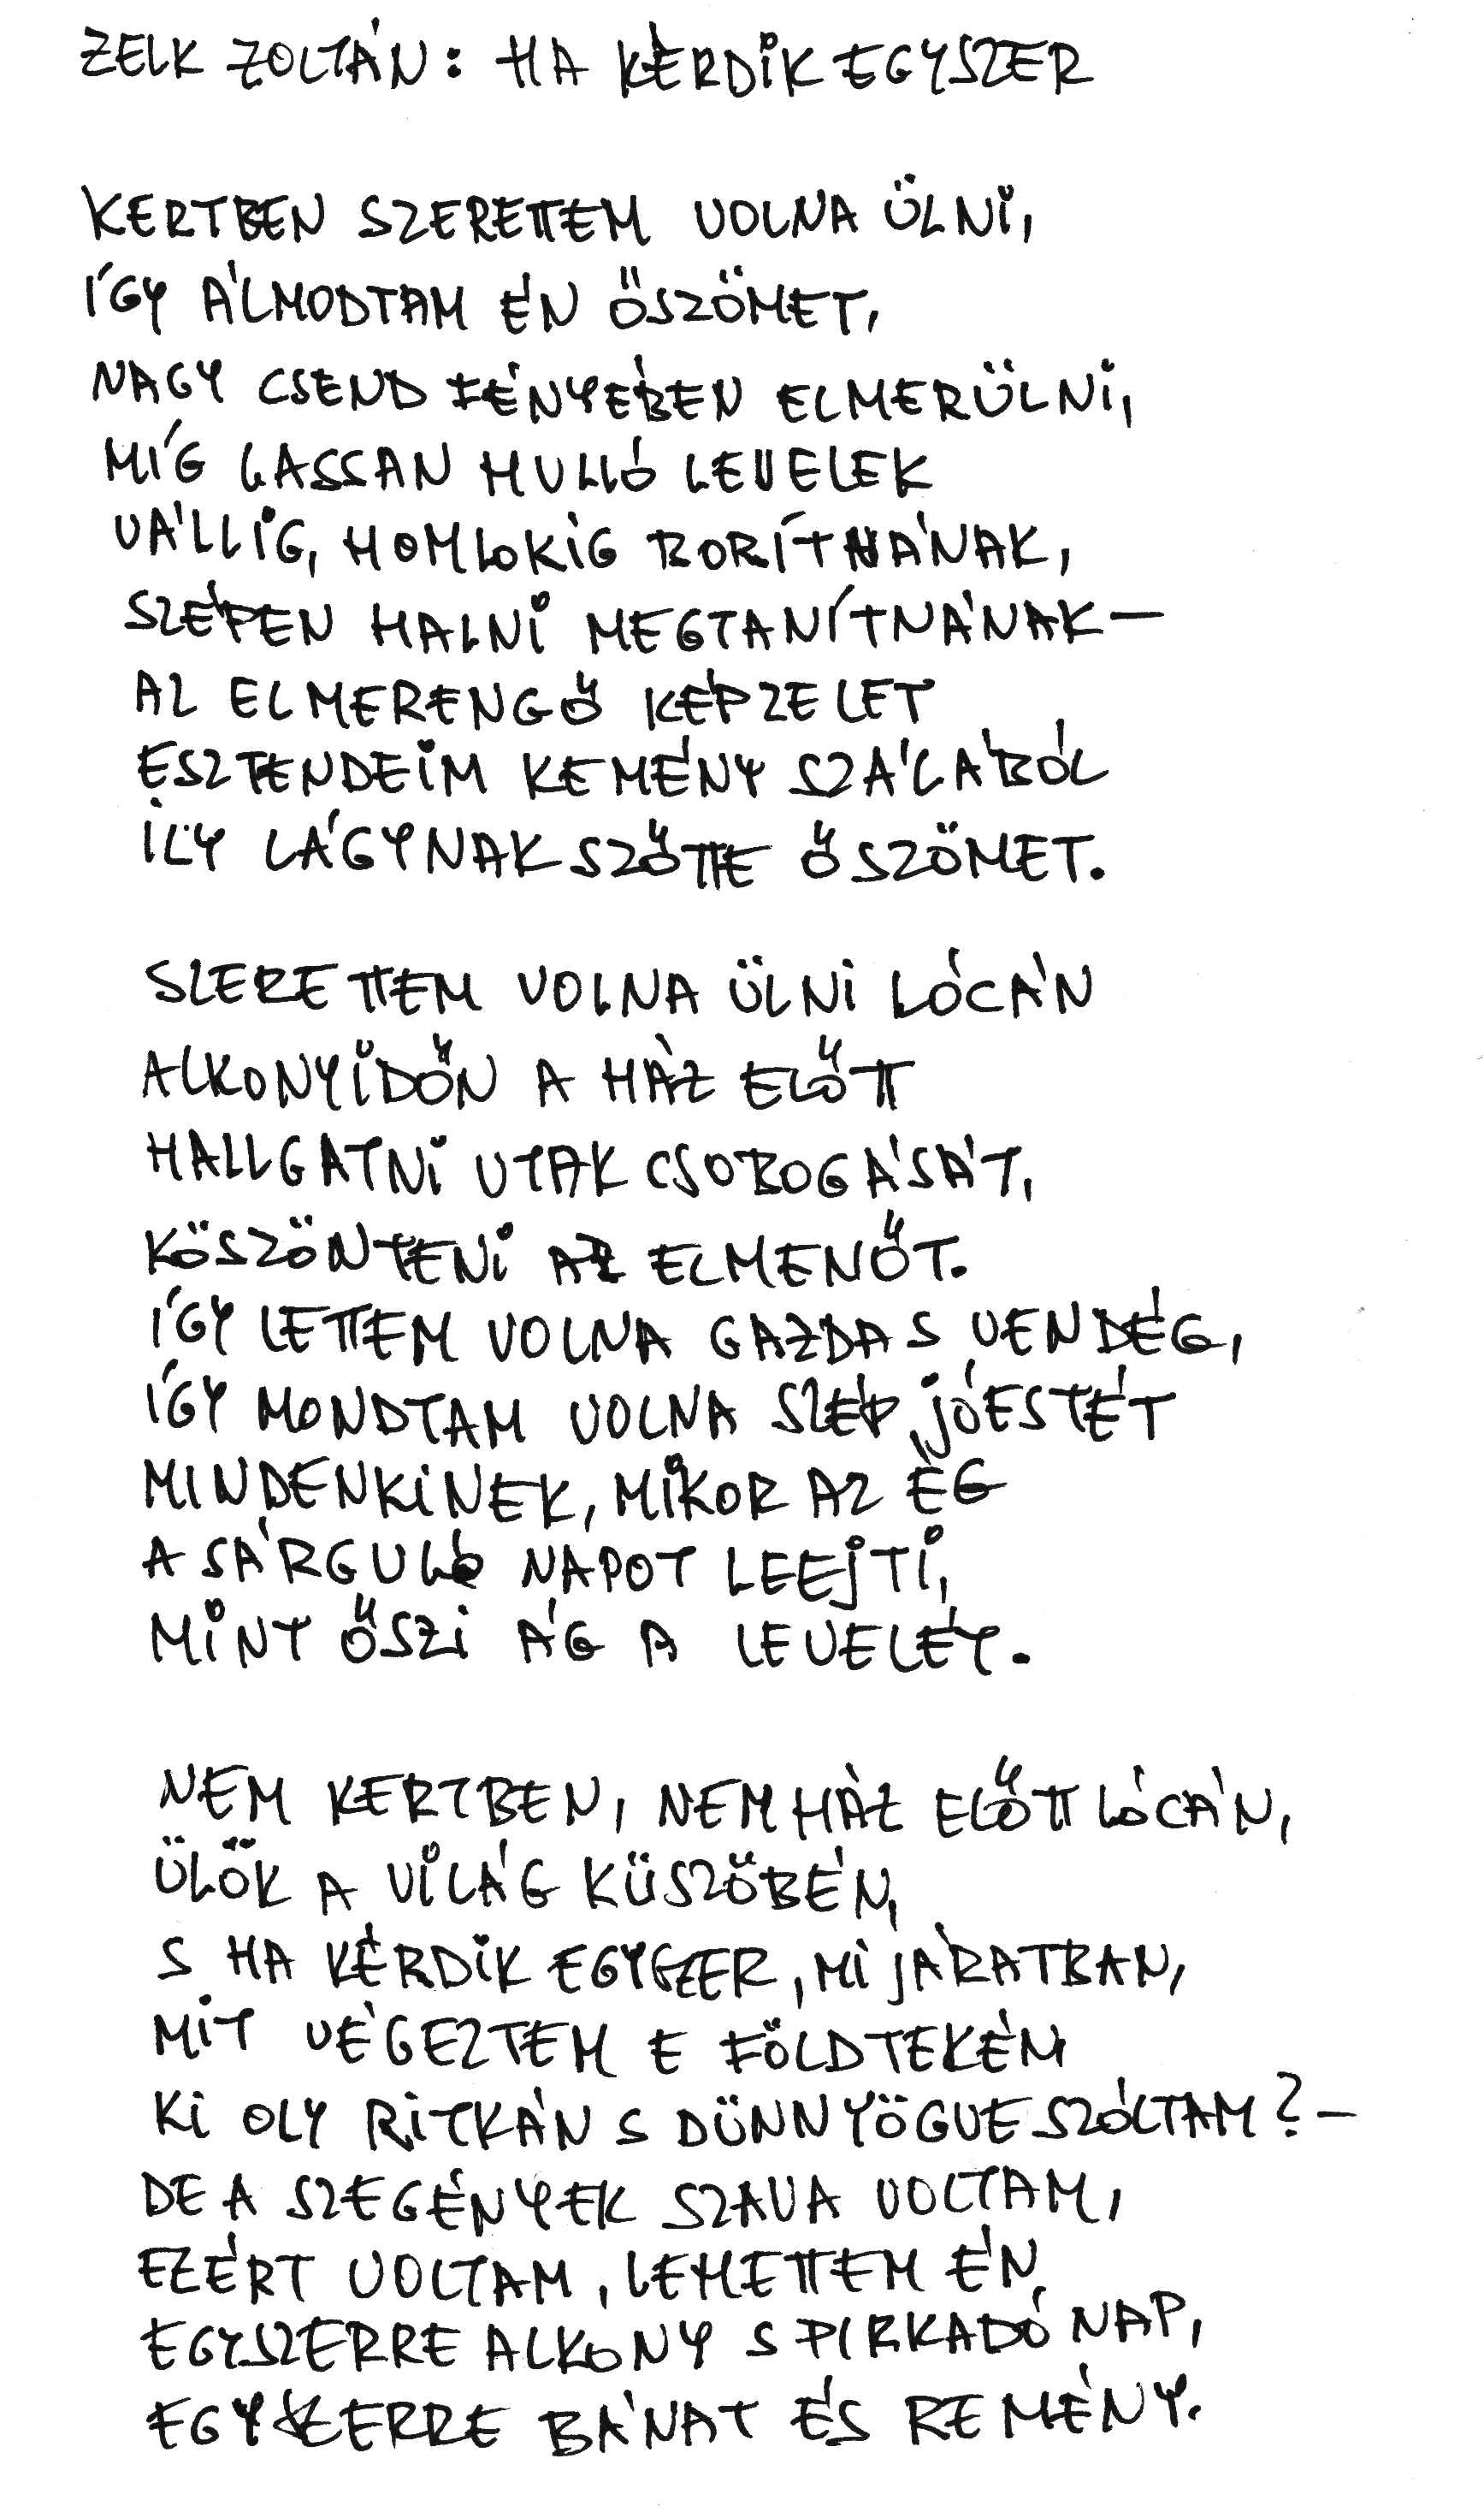 ZELK ZOLTÁN: HA KÉRDIK EGYSZER
KERTBEN SZERETTEM VOLNA ÜLNI,
ÍGY ÁLMODTAM ÉN ŐSZÖMET,
NAGY CSEND FÉNYÉBEN ELMERÜLNI,
MÍG LASSAN HULLÓ LEVELEK
VÁLLIG, HOMLOKIG BORÍTNÁNAK,
SZÉPEN HALNI MEGTANÍTNÁNAK —
AZ ELMERENGŐ KÉPZELET
ESZTENDEIM KEMÉNY SZÁLÁBÓL
ILY LÁGYNAK SZŐTTE ŐSZÖMET.
SZERETTEM VOLNA ÜLNI LÓCÁN
ALKONYIDŐN A HÁZ ELŐTT
HALLGATNI UTAK CSOBOGÁSÁT,
KÖSZÖNTENI AZ ELMENŐT.
ÍGY LETTEM VOLNA GAZDA S VENDÉG,
ÍGY MONDTAM VOLNA SZÉP JÓESTÉT
MINDENKINEK, MIKOR AZ ÉG
A SÁRGULÓ NAPOT LEEJTI,
MINT ŐSZI ÁG A LEVELÉT.
NEM KERTBEN, NEM HÁZ ELŐTT LÓCÁN,
ÜLÖK A VILÁG KÜSZÖBÉN,
S HA KÉRDIK EGYSZER, MI JÁRATBAN,
MIT VÉGEZTEM E FÖLDTEKÉN
KI OLY RITKÁN S DÜNNYÖGVE SZÓLTAM? —
DE A SZEGÉNYEK SZAVA VOLTAM,
EZÉRT VOLTAM, LEHETTEM ÉN
EGYSZERRE ALKONY S PIRKADÓ NAP,
EGYSZERRE BÁNAT ÉS REMÉNY.